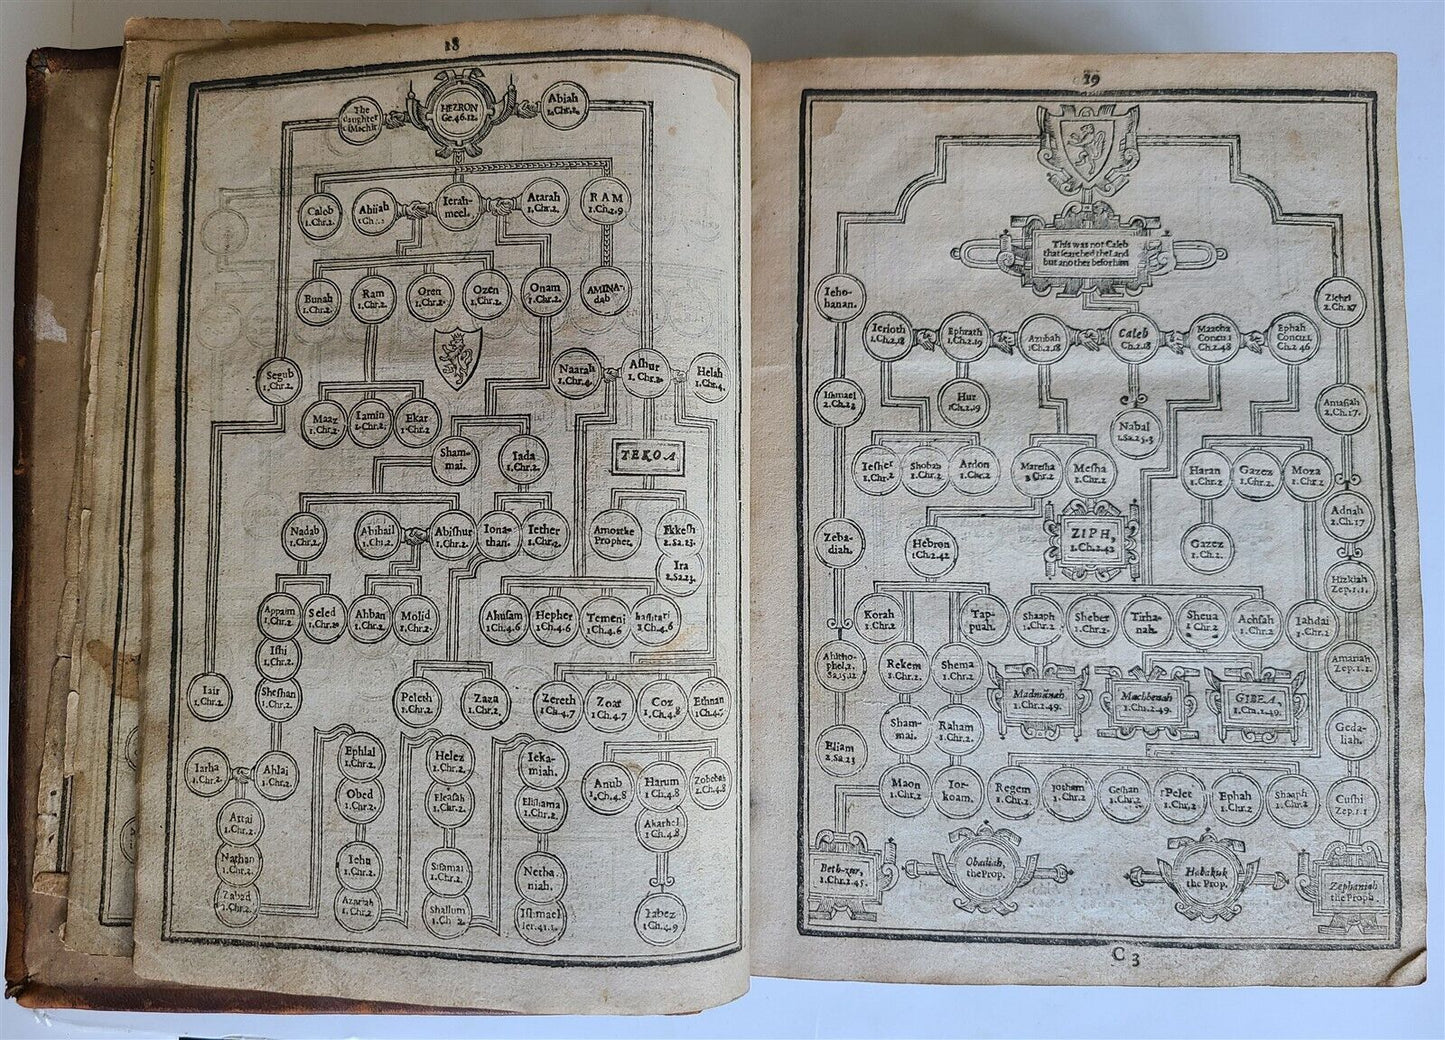 18
The
daughter
HEZRON
Ge.46.12.
Abiah
Caleb
1.Chr.2.
Ahiiah
Ierah-
meel.
Atarah
1.Chr.2.
RAM
1.Ch.2.9
Bunah
1.Chr.2.
Ram
1.Chr.2.
Oren
1.Chr.2.
Ozen
1.Chr.2.
Onam
1.Chr.2.
AMINA-
dab
Segub
1.Chr.2.
Naarah
1.Chr.4.
Ashur
1.Chr.2.
Helah
1.Chr.4.
Maaz
1.Chr.2.
Iamin
1.Chr.2.
Ekar
1.Chr.2
Sham-
mai.
Iada
1.Chr.2.
TEKOA
Nadab
1.Chr.2.
Abihail
1.Ch.2.
Abishur
1.Chr.2.
Iona-
than.
Iether
1.Chr.2.
Amos the
Prophet.
Ikkesh
2.Sa.23.
Ira
2.Sa.23.
Appaim
1.Chr.2.
Seled
1.Chr.2.
Ahban
1.Chr.2.
Molid
1.Chr.2.
Ahusam
1Ch.4.6
Hepher
1Ch.4.6
Temeni
1Ch.4.6
1Ch.4.6
Ishi
1.Chr.2.
Iair
1.Chr.2.
Sheshan
1.Chr.2.
Peleth
1.Chr.2.
Zaza
1.Chr.2.
Zereth
1.Ch.4.7
Zoar
1.Ch.4.7
Coz
1.Ch.4.8
Ethnan
1.Ch.4.7
Iarha
1.Chr.2.
Ahlai
1.Chr.2.
Ephlal
1.Chr.2.
Helez
1.Chr.2.
Ieka-
miah.
Anub
1.Ch.4.8
Harum
1.Ch.4.8
Zobebah
1.Ch.4.8
Attai
1.Chr.2.
Obed
1.Chr.2.
Eleasah
1.Chr.2.
Elishama
1.Chr.2.
Akarhel
1Ch.4.8
Nathan
1.Chr.2.
Iehu
1.Chr.2.
Sisamai
1.Chr.2.
Netha
niah.
Zabad
1.Chr.2.
Azariah
1.Chr.2.
Shallum
1.Ch 2.
Ishmael
Ier.41.1.
Iabez
1Ch.4.9
19
This was not Caleb
that searched the Land
but another before him
Ieho-
hanan.
Zichri
2.Ch.17
Ierioth
1.Ch.2.18
Ephrath
1.Ch.2.19
Azubah
1Ch.2.18
Caleb
Ch.2.18
Maacha
Concu.1
Ch.2.48
Ephah
Concu.1.
Ch.2 46
Ishmael
2.Ch.23
Hur
1Ch.2.19
Nabal
1.Sa.25.3
Amasiah
2.Ch.17.
Iesher
1.Chr.2
Shobab
1.Chr.2
Ardon
1.Chr.2
Maresha
1.Chr.2
Mesha
1.Chr.2
Haran
1.Chr.2
Gazez
1.Chr.2.
Moza
1.Chr.2
Adnah
2.Ch.17
Zeba-
diah.
Hebron
1Ch.2.42
ZIPH,
1.Ch.2.42
Gazez
1.Ch.2.
Hizkiah
Zep.1.1.
Korah
1.Chr.2
Tap-
puah.
Shaaph
1.Chr.2
Sheber
1.Chr.2.
Tirha-
nah.
Sheua
1.Chr.2
Achsah
1.Chr.2
Iahdai
1.Chr.2
Ahitho-
phel,2.
Sa.15.12
Rekem
1.Chr.2
Shema
1.Chr.2
Amariah
Zep.1.1.
Madmanah
1.Ch.2.49.
Machbenah
1.Ch.2.49.
GIBEA,
1.Ch.2.49.
Sham-
mai.
Raham
1.Chr.2.
Geda-
liah.
Eliam
2.Sa.23
Maon
1.Chr.2
Ior-
koam.
Regem
1.Chr.2.
Iotham
1.Chr.2.
Geshan
1.Chr.2.
Pelet
1.Chr.2
Ephah
1.Chr.2
Shaaph
1.Chr.2
Cushi
Zep.1.1
Beth-zur,
1.Chr.2.45.
Obadiah,
the Prop.
Habakuk
the Prop.
Zephaniah
the Proph.
C 3